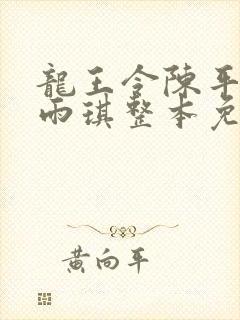 龍王令陳平
雨琪整本免
黃向平